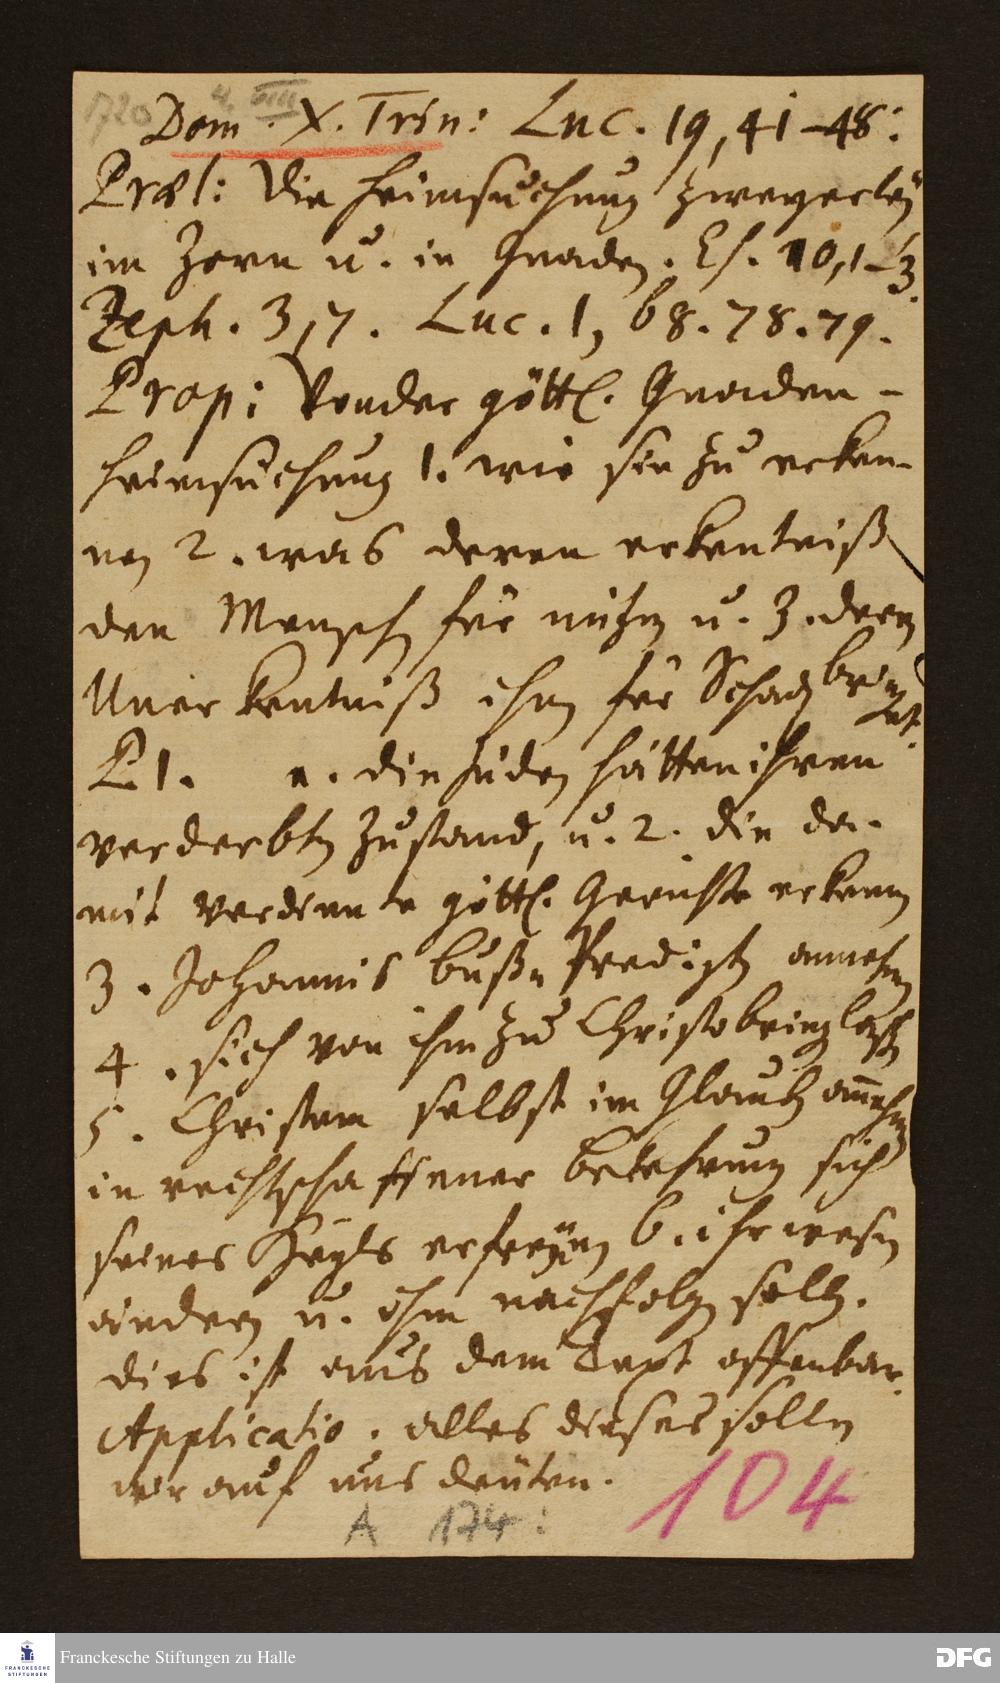 1720 4. VIII
Dom. X. Trin: Luc. 19, 41-48:
Præl: Die Heimsuchung zweyerley
im Zorn u. in Gnaden. Es. 10, 1-3.
Zeph. 3, 7. Luc. 1, 68. 78. 79.
Prop: Von der göttl. Gnaden-
heimsuchung 1. wie sie zu erken-
nen 2. was deren erkentniß
den Menschen für nutzen u. 3. deren
Unerkentniß ihm für Schaden bringet.
P 1. die Juden hätten ihren
verderbten Zustand, u. 2. die da-
mit verdiente göttl. Gerichte erkennen
3. Johannis buße Predigten annehmen
4. sich von ihm zu Christo bringen laßen
5. Christum selbst im Glauben annehmen
in rechtschaffener bekehrung sich
seines Heyls erfreuen 6. ihr wesen
ändern u. ihm nachfolgen sollen.
dies ist aus dem Text offenbar.
Applicatio. alles dieses sollen
wir auf uns deuten.
A 174: 104
Franckesche Stiftungen zu Halle
FRANCKESCHE STIFTUNGEN
DFG